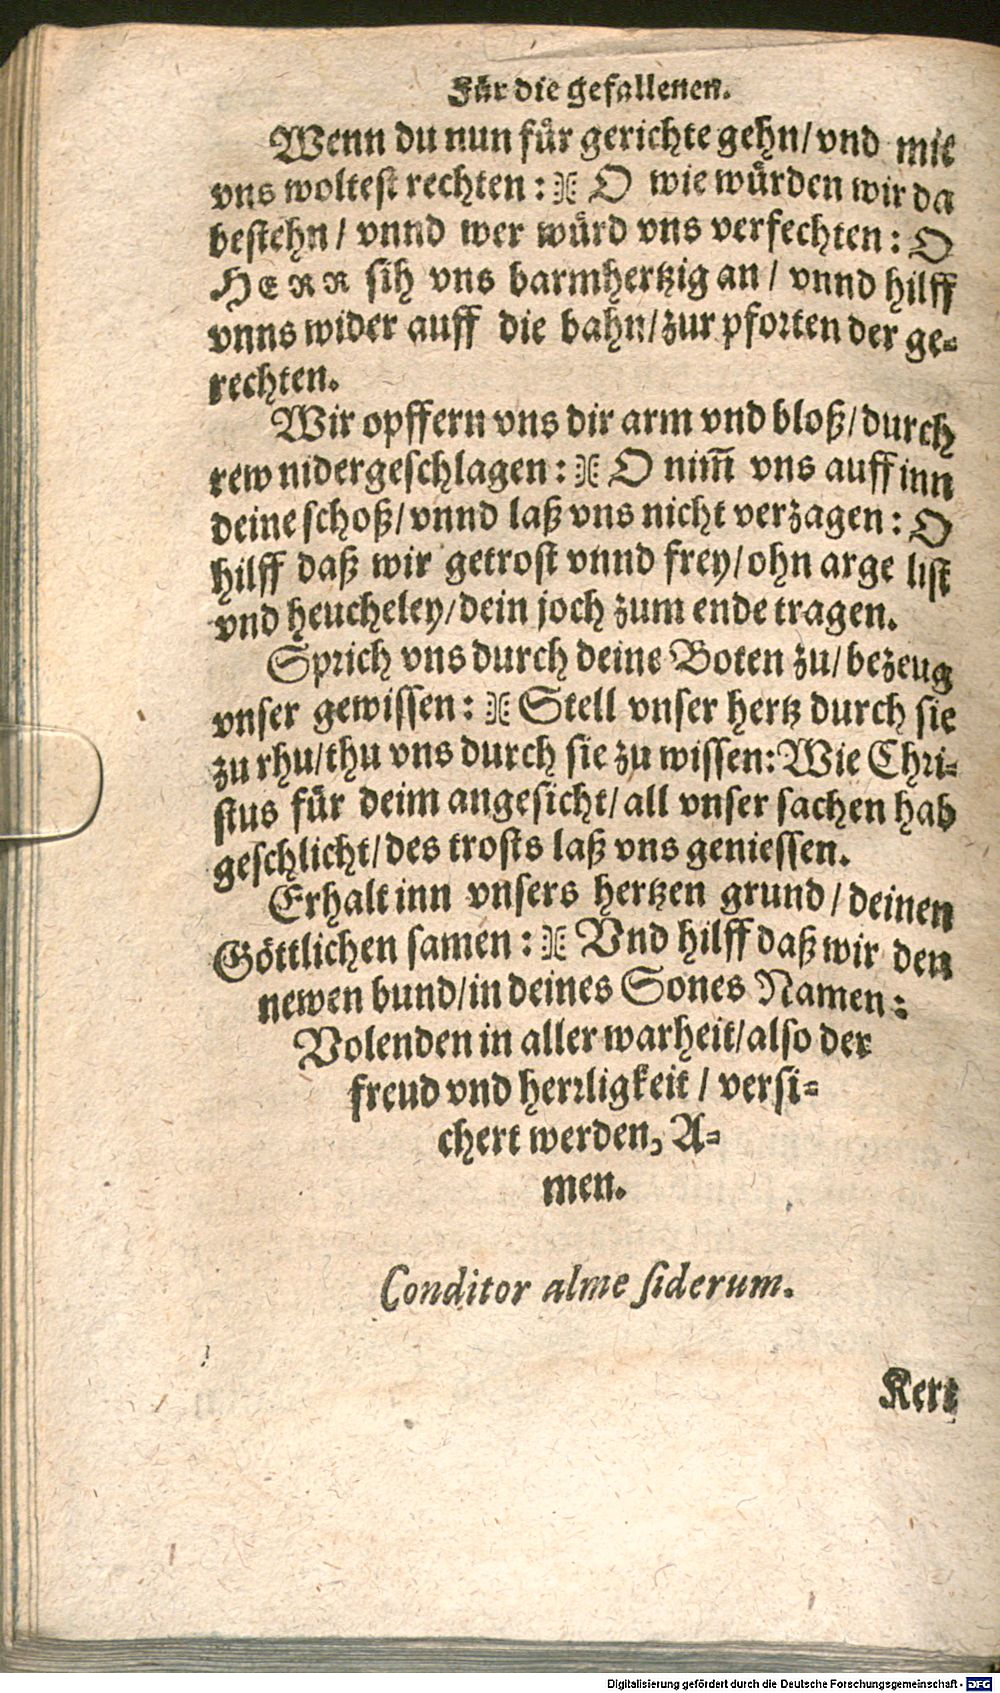 Für die gefallenen.
Wenn du nun für gerichte gehn/ vnd mit
vns woltest rechten : O wie würden wir da
bestehn / vnnd wer würd vns verfechten : O
HERR sih vns barmhertzig an / vnnd hilff
vnns wider auff die bahn/ zur pforten der ge-
rechten.
Wir opffern vns dir arm vnd bloß/ durch
rew nidergeschlagen : O nim̃ vns auff inn
deine schoß/ vnnd laß vns nicht verzagen : O
hilff daß wir getrost vnnd frey/ ohn arge list
vnd heucheley/ dein joch zum ende tragen.
Sprich vns durch deine Boten zu/ bezeug
vnser gewissen : Stell vnser hertz durch sie
zu rhu/ thu vns durch sie zu wissen: Wie Chri-
stus für deim angesicht/ all vnser sachen hab
geschlicht/ des trosts laß vns geniessen.
Erhalt inn vnsers hertzen grund / deinen
Göttlichen samen : Vnd hilff daß wir den
newen bund/ in deines Sones Namen :
Volenden in aller warheit/ also der
freud vnd herrligkeit / versi-
chert werden, A-
men.
Conditor alme siderum.
Kert
Digitalisierung gefördert durch die Deutsche Forschungsgemeinschaft - DFG